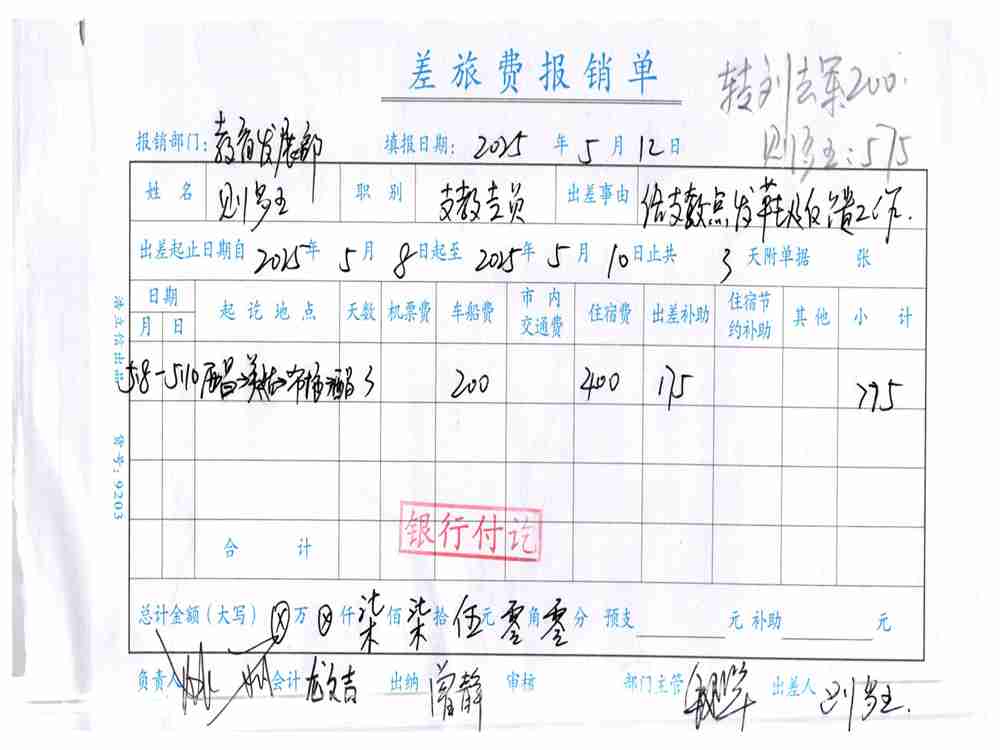 差旅费报销单
转刘去军200.
则多主:575
报销部门: 教育发展部 填报日期: 2025 年 5 月 12 日
姓名 则多主 职别 支教专员 出差事由 给支教点发鞋及反馈工作.
出差起止日期自 2025 年 5 月 8 日起至 2025 年 5 月 10 日止共 3 天附单据 张
日期 起讫地点 天数 机票费 车船费 市内交通费 住宿费 出差补助 住宿节约补助 其他 小计
月 日
5.8-5.10 西昌 3 200 400 175 775
合计
银行付讫
总计金额(大写) ⊗万 ⊗仟 柒佰 柒拾 伍元 零角 零分 预支 元 补助 元
负责人 会计 龙文吉 出纳 曾静 审核 部门主管 出差人 则多主.
货号:9203